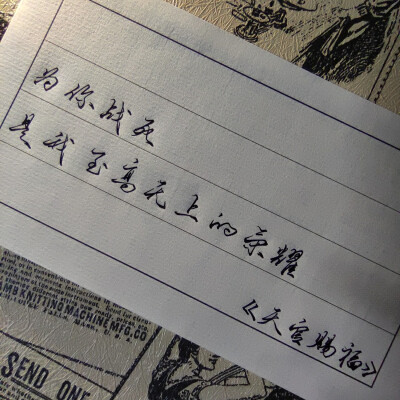 为你战死
是我至高无上的荣耀
《天官赐福》
AMB KNITTING MACHINE MFG. CO
SEND ONE